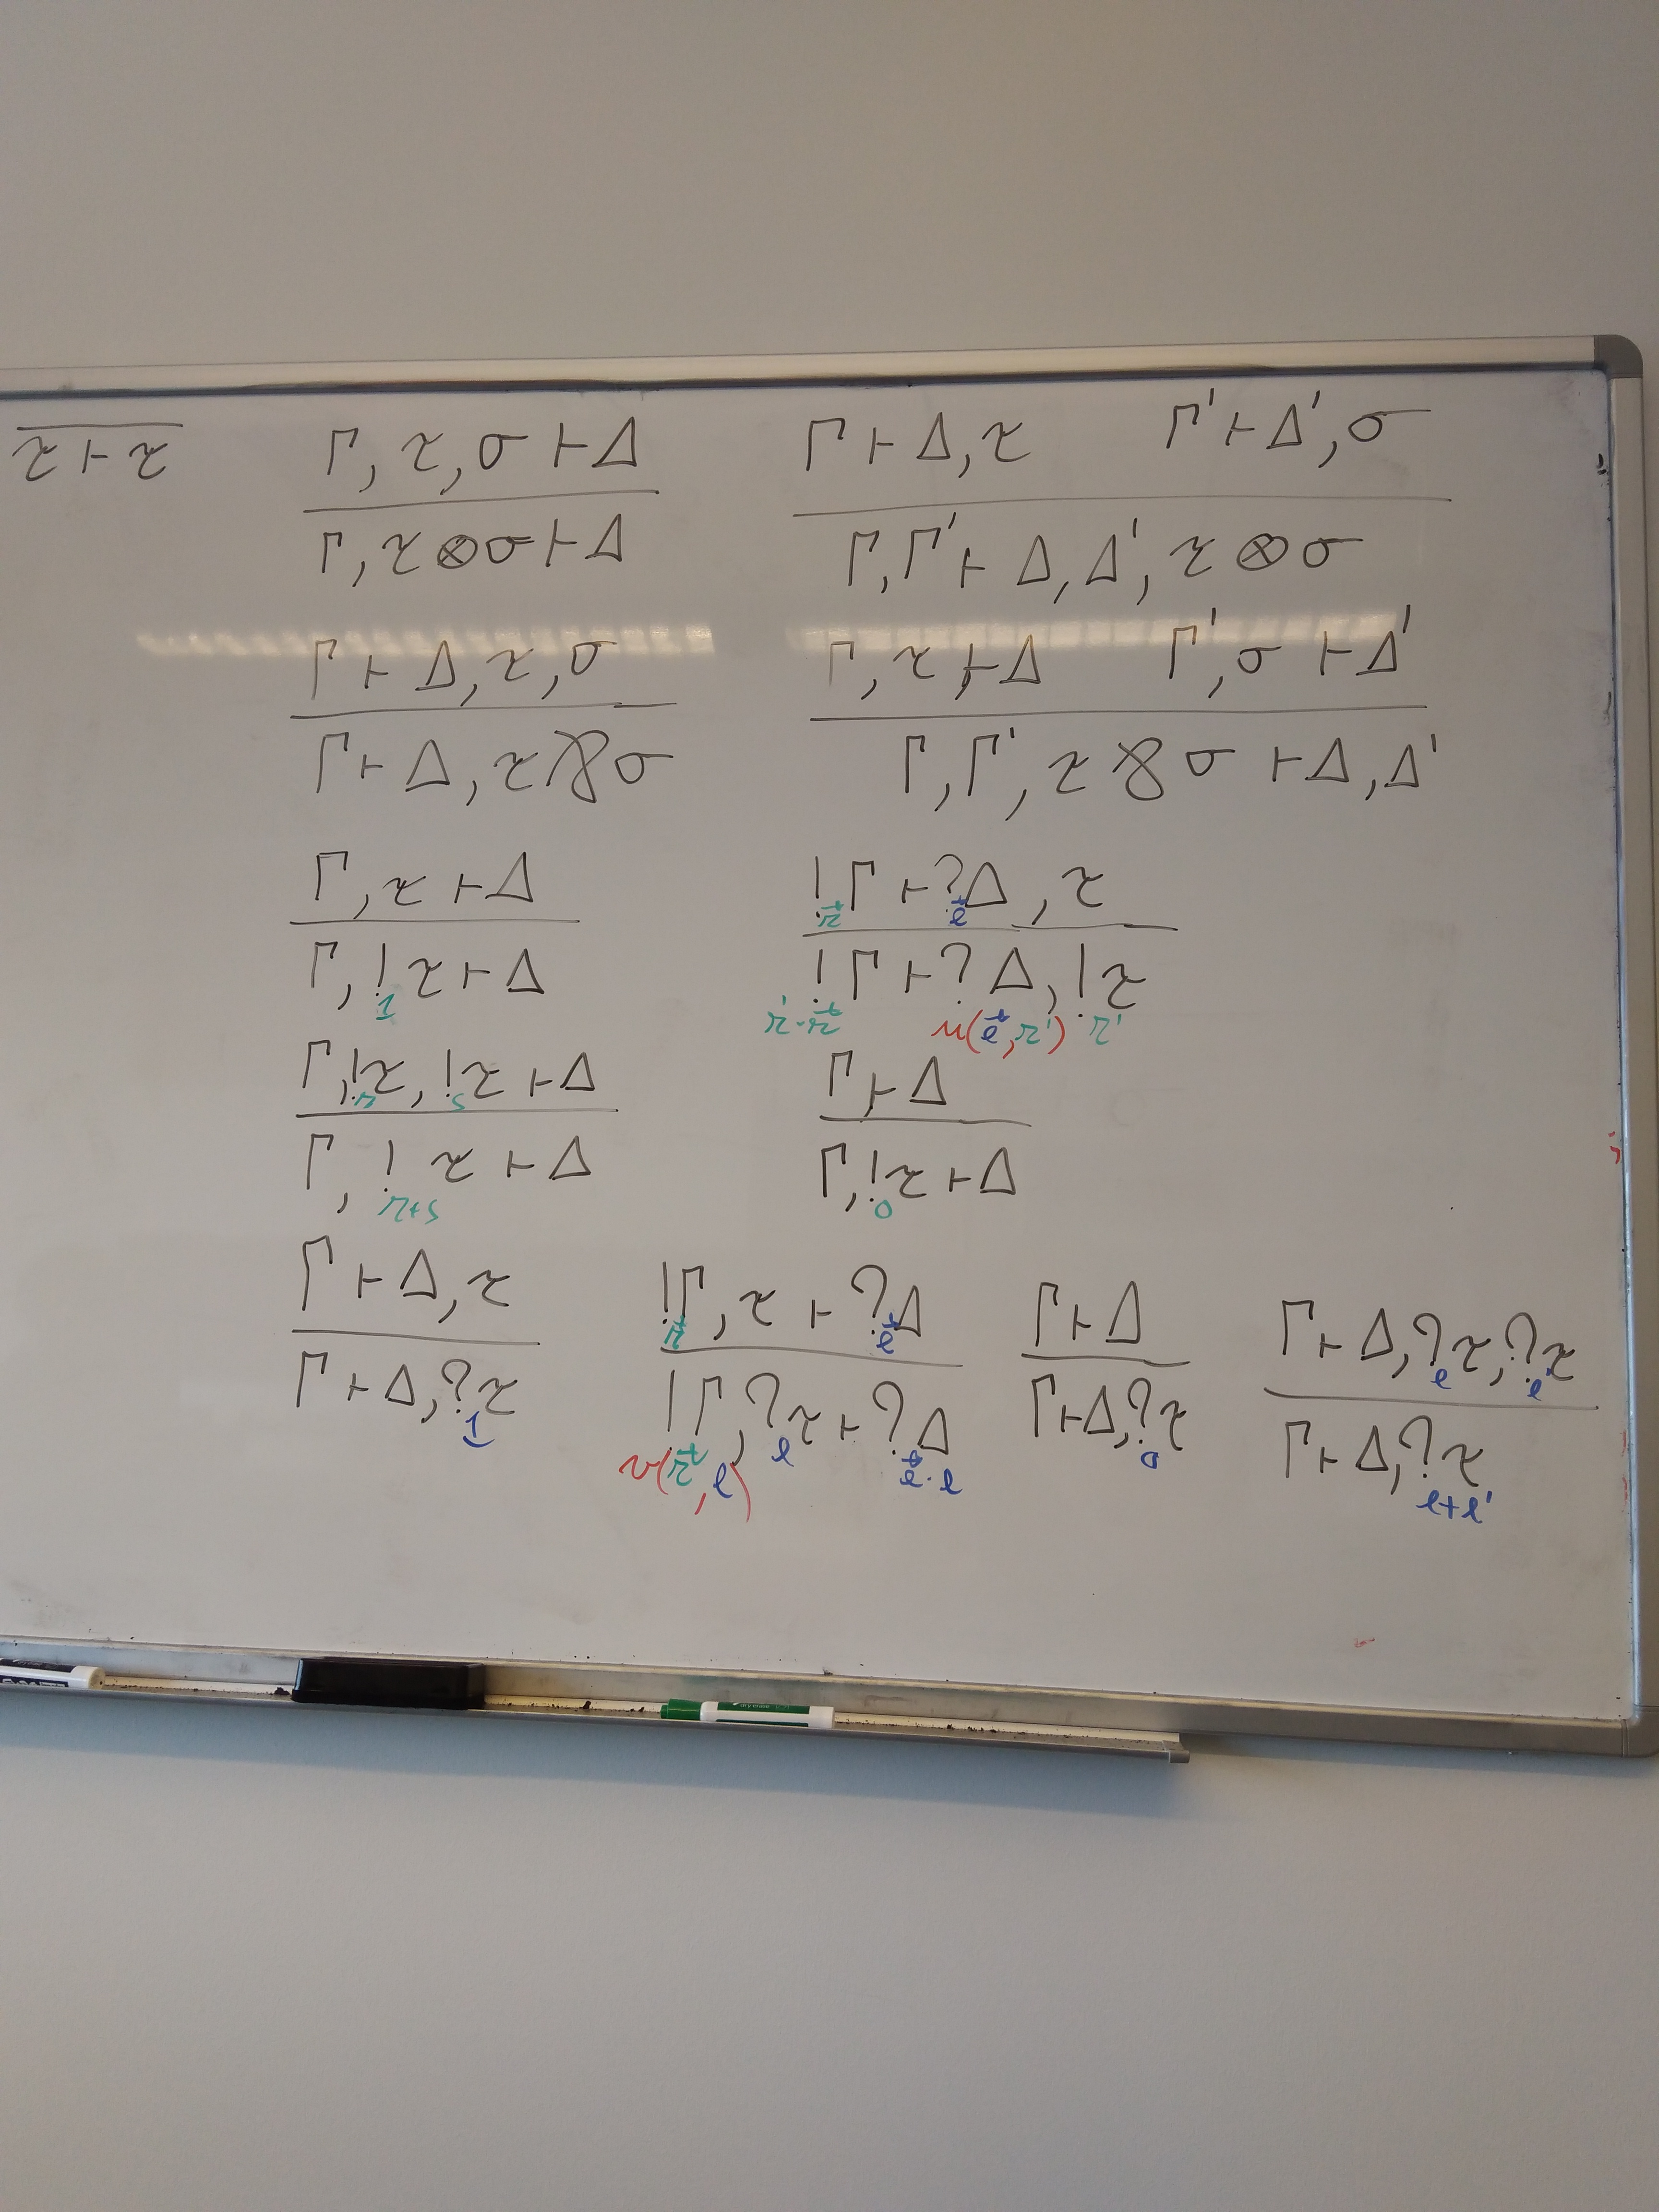 τ ⊢ τ
Γ, τ, σ ⊢ Δ
Γ, τ ⊗ σ ⊢ Δ
Γ ⊢ Δ, τ    Γ' ⊢ Δ', σ
Γ, Γ' ⊢ Δ, Δ', τ ⊗ σ
Γ ⊢ Δ, τ, σ
Γ ⊢ Δ, τ ⅋ σ
Γ, τ ⊢ Δ    Γ', σ ⊢ Δ'
Γ, Γ', τ ⅋ σ ⊢ Δ, Δ'
Γ, τ ⊢ Δ
Γ, !₁ τ ⊢ Δ
!_{r⃗} Γ ⊢ ?_{l⃗} Δ, τ
!_{r'·r⃗} Γ ⊢ ?_{u(l⃗, r')} Δ, !_{r'} τ
Γ, !_r τ, !_s τ ⊢ Δ
Γ, !_{r+s} τ ⊢ Δ
Γ ⊢ Δ
Γ, !₀ τ ⊢ Δ
Γ ⊢ Δ, τ
Γ ⊢ Δ, ?₁ τ
!_{r⃗} Γ, τ ⊢ ?_{l⃗} Δ
!_{v(r⃗, l)} Γ, ?_l τ ⊢ ?_{l⃗·l} Δ
Γ ⊢ Δ
Γ ⊢ Δ, ?₀ τ
Γ ⊢ Δ, ?_l τ, ?_{l'} τ
Γ ⊢ Δ, ?_{l+l'} τ